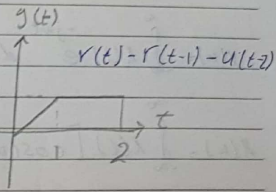 g(t)
r(t) - r(t-1) - u(t-2)
t
1 2